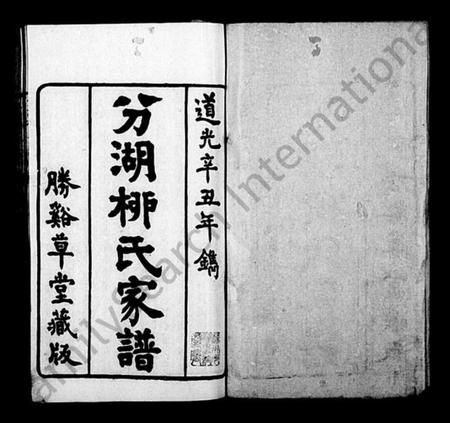 道光辛丑年鐫
分湖栁氏家譜
勝谿草堂藏版
FamilySearch International